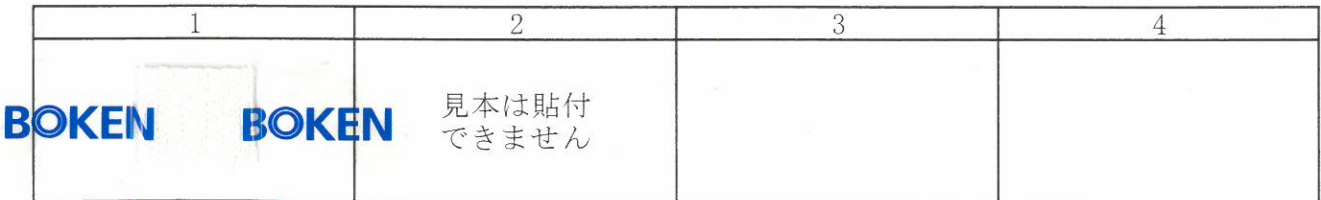 1 2 3 4
BOKEN BOKEN
見本は貼付
できません